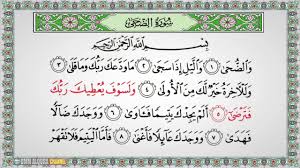 سُورَةُ الضُّحَى
بِسْمِ اللَّهِ الرَّحْمَٰنِ الرَّحِيمِ
وَالضُّحَى ١ وَاللَّيْلِ إِذَا سَجَى ٢ مَا وَدَّعَكَ رَبُّكَ وَمَا قَلَى ٣
وَلَلْآخِرَةُ خَيْرٌ لَكَ مِنَ الْأُولَى ٤ وَلَسَوْفَ يُعْطِيكَ رَبُّكَ
فَتَرْضَى ٥ أَلَمْ يَجِدْكَ يَتِيمًا فَآوَى ٦ وَوَجَدَكَ ضَالًّا
فَهَدَى ٧ وَوَجَدَكَ عَائِلًا فَأَغْنَى ٨ فَأَمَّا الْيَتِيمَ فَلَا تَقْهَرْ